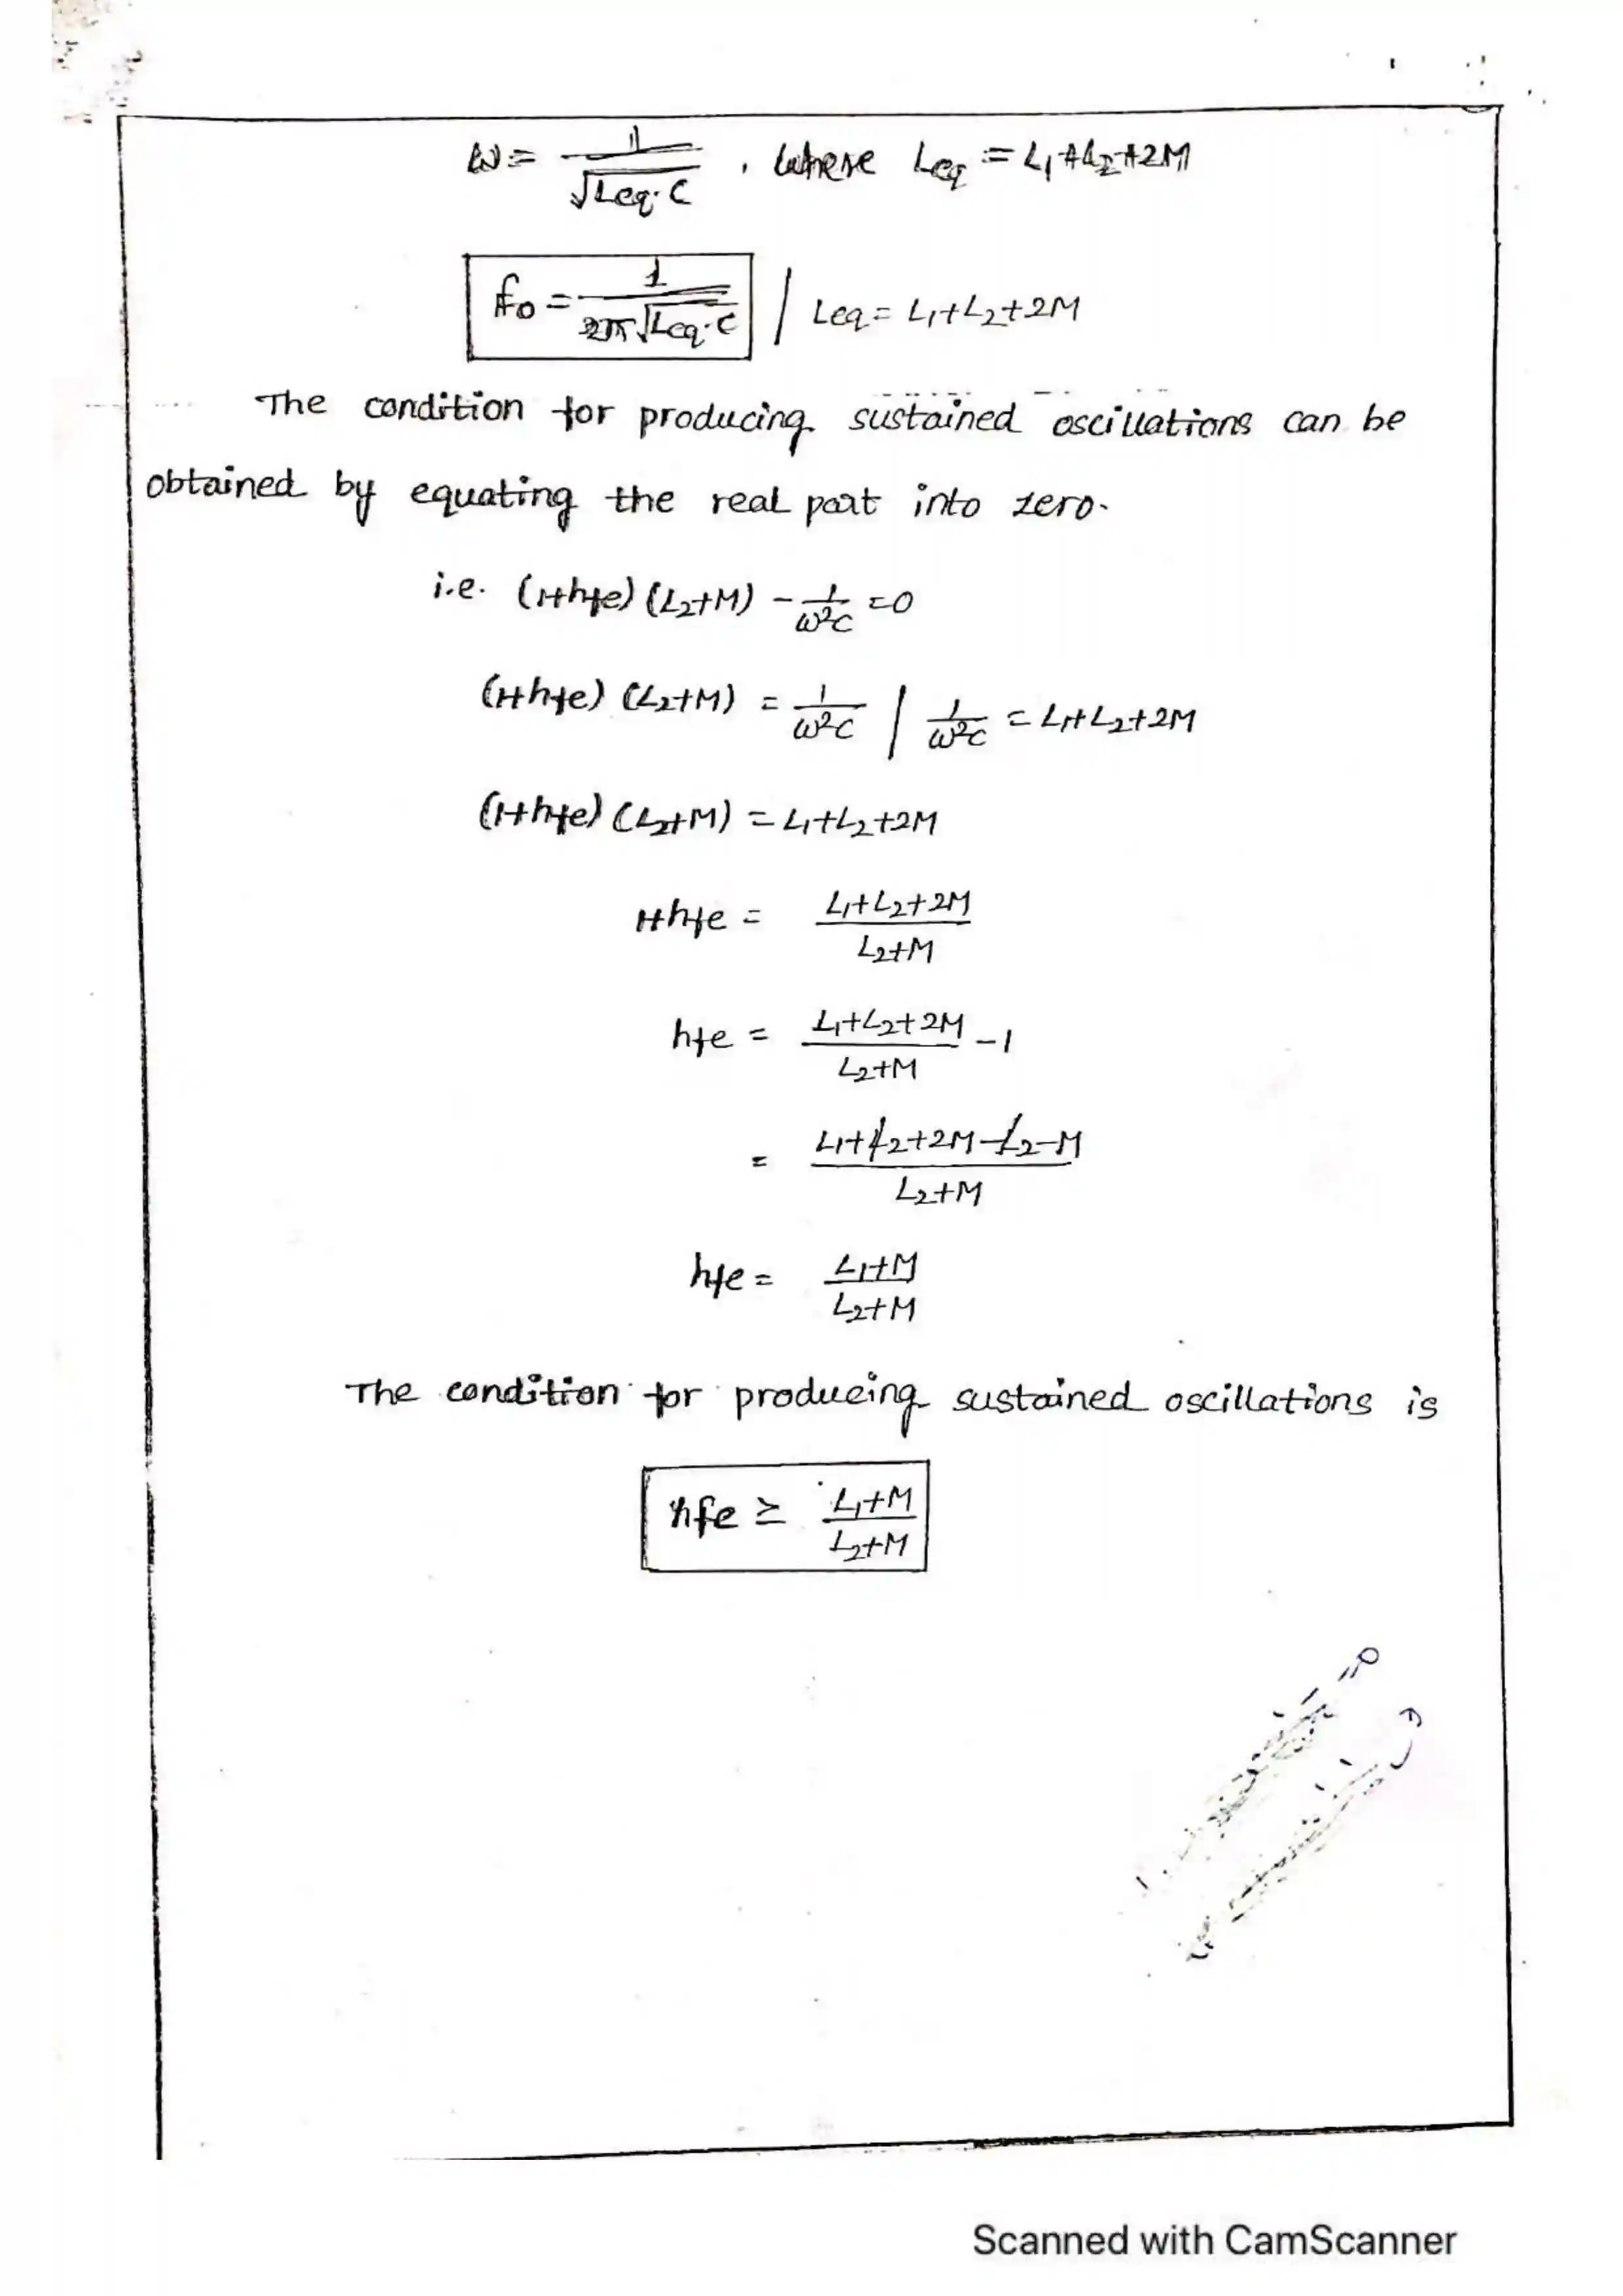 ω = 1/√(Leq.C) , where Leq = L₁+L₂+2M
fo = 1/(2π√(Leq.C)) / Leq = L₁+L₂+2M
The condition for producing sustained oscillations can be
obtained by equating the real part into zero.
i.e. (1+hfe) (L₂+M) - 1/(ω²C) = 0
(1+hfe) (L₂+M) = 1/(ω²C) / 1/(ω²C) = L₁+L₂+2M
(1+hfe) (L₂+M) = L₁+L₂+2M
1+hfe = (L₁+L₂+2M)/(L₂+M)
hfe = (L₁+L₂+2M)/(L₂+M) - 1
= (L₁+L₂+2M-L₂-M)/(L₂+M)
hfe = (L₁+M)/(L₂+M)
The condition for producing sustained oscillations is
hfe ≥ (L₁+M)/(L₂+M)
Scanned with CamScanner